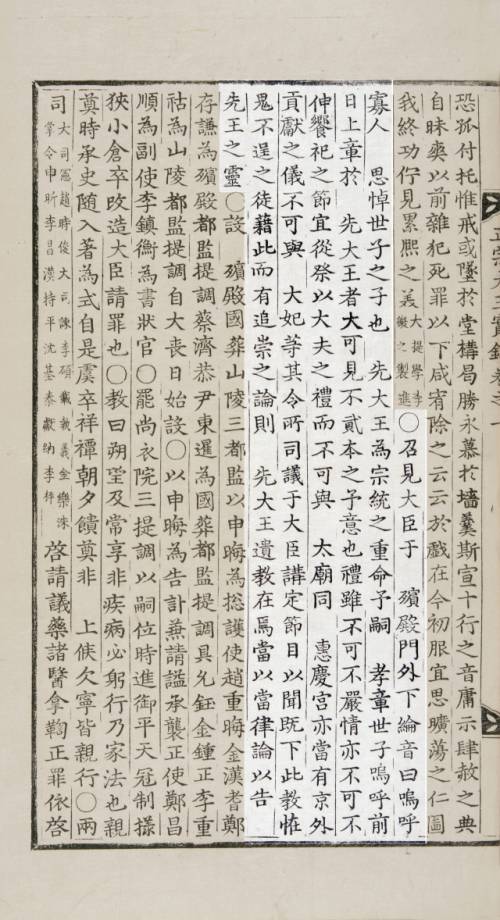 正宗大王實錄卷之一
恐孤付托惟戒或墜於堂構局勝永慕於墻羹斯宣十行之音庸示肆赦之典
自昧爽以前雜犯死罪以下咸宥除之云云於戲在今初服宜思曠蕩之仁圖
我終功佇見累熙之美大提學李徽之製進〇召見大臣于 殯殿門外下綸音曰嗚呼
寡人 思悼世子之子也 先大王為宗統之重命予嗣 孝章世子嗚呼前
日上章於 先大王者大可見不貳本之予意也禮雖不可不嚴情亦不可不
伸饗祀之節宜從祭以大夫之禮而不可與 太廟同 惠慶宮亦當有京外
貢獻之儀不可與 大妃等其令所司議于大臣講定節目以聞既下此教恠
鬼不逞之徒藉此而有追崇之論則 先大王遺教在焉當以當律論以告
先王之靈〇設 殯殿國葬山陵三都監以申晦為摠護使趙重晦金漢耆鄭
存謙為殯殿都監提調蔡濟恭尹東暹為國葬都監提調具允鈺金鍾正李重
祜為山陵都監提調自大喪日始設〇以申晦為告訃兼請謚承襲正使鄭昌
順為副使李鎮衡為書狀官〇罷尚衣院三提調以嗣位時進御平天冠制㨾
狹小倉卒改造大臣請罪也〇教曰朔望及常享非疾病必躬行乃家法也親
奠時承史随入著為式自是虞卒祥禫朝夕饋奠非 上候欠寧皆親行〇兩
司大司憲趙時俊大司諫李碩載執義金樂洙掌令申昕李昌漢持平沈基泰獻納李枰 啓請議藥諸醫拿鞫正罪依啓